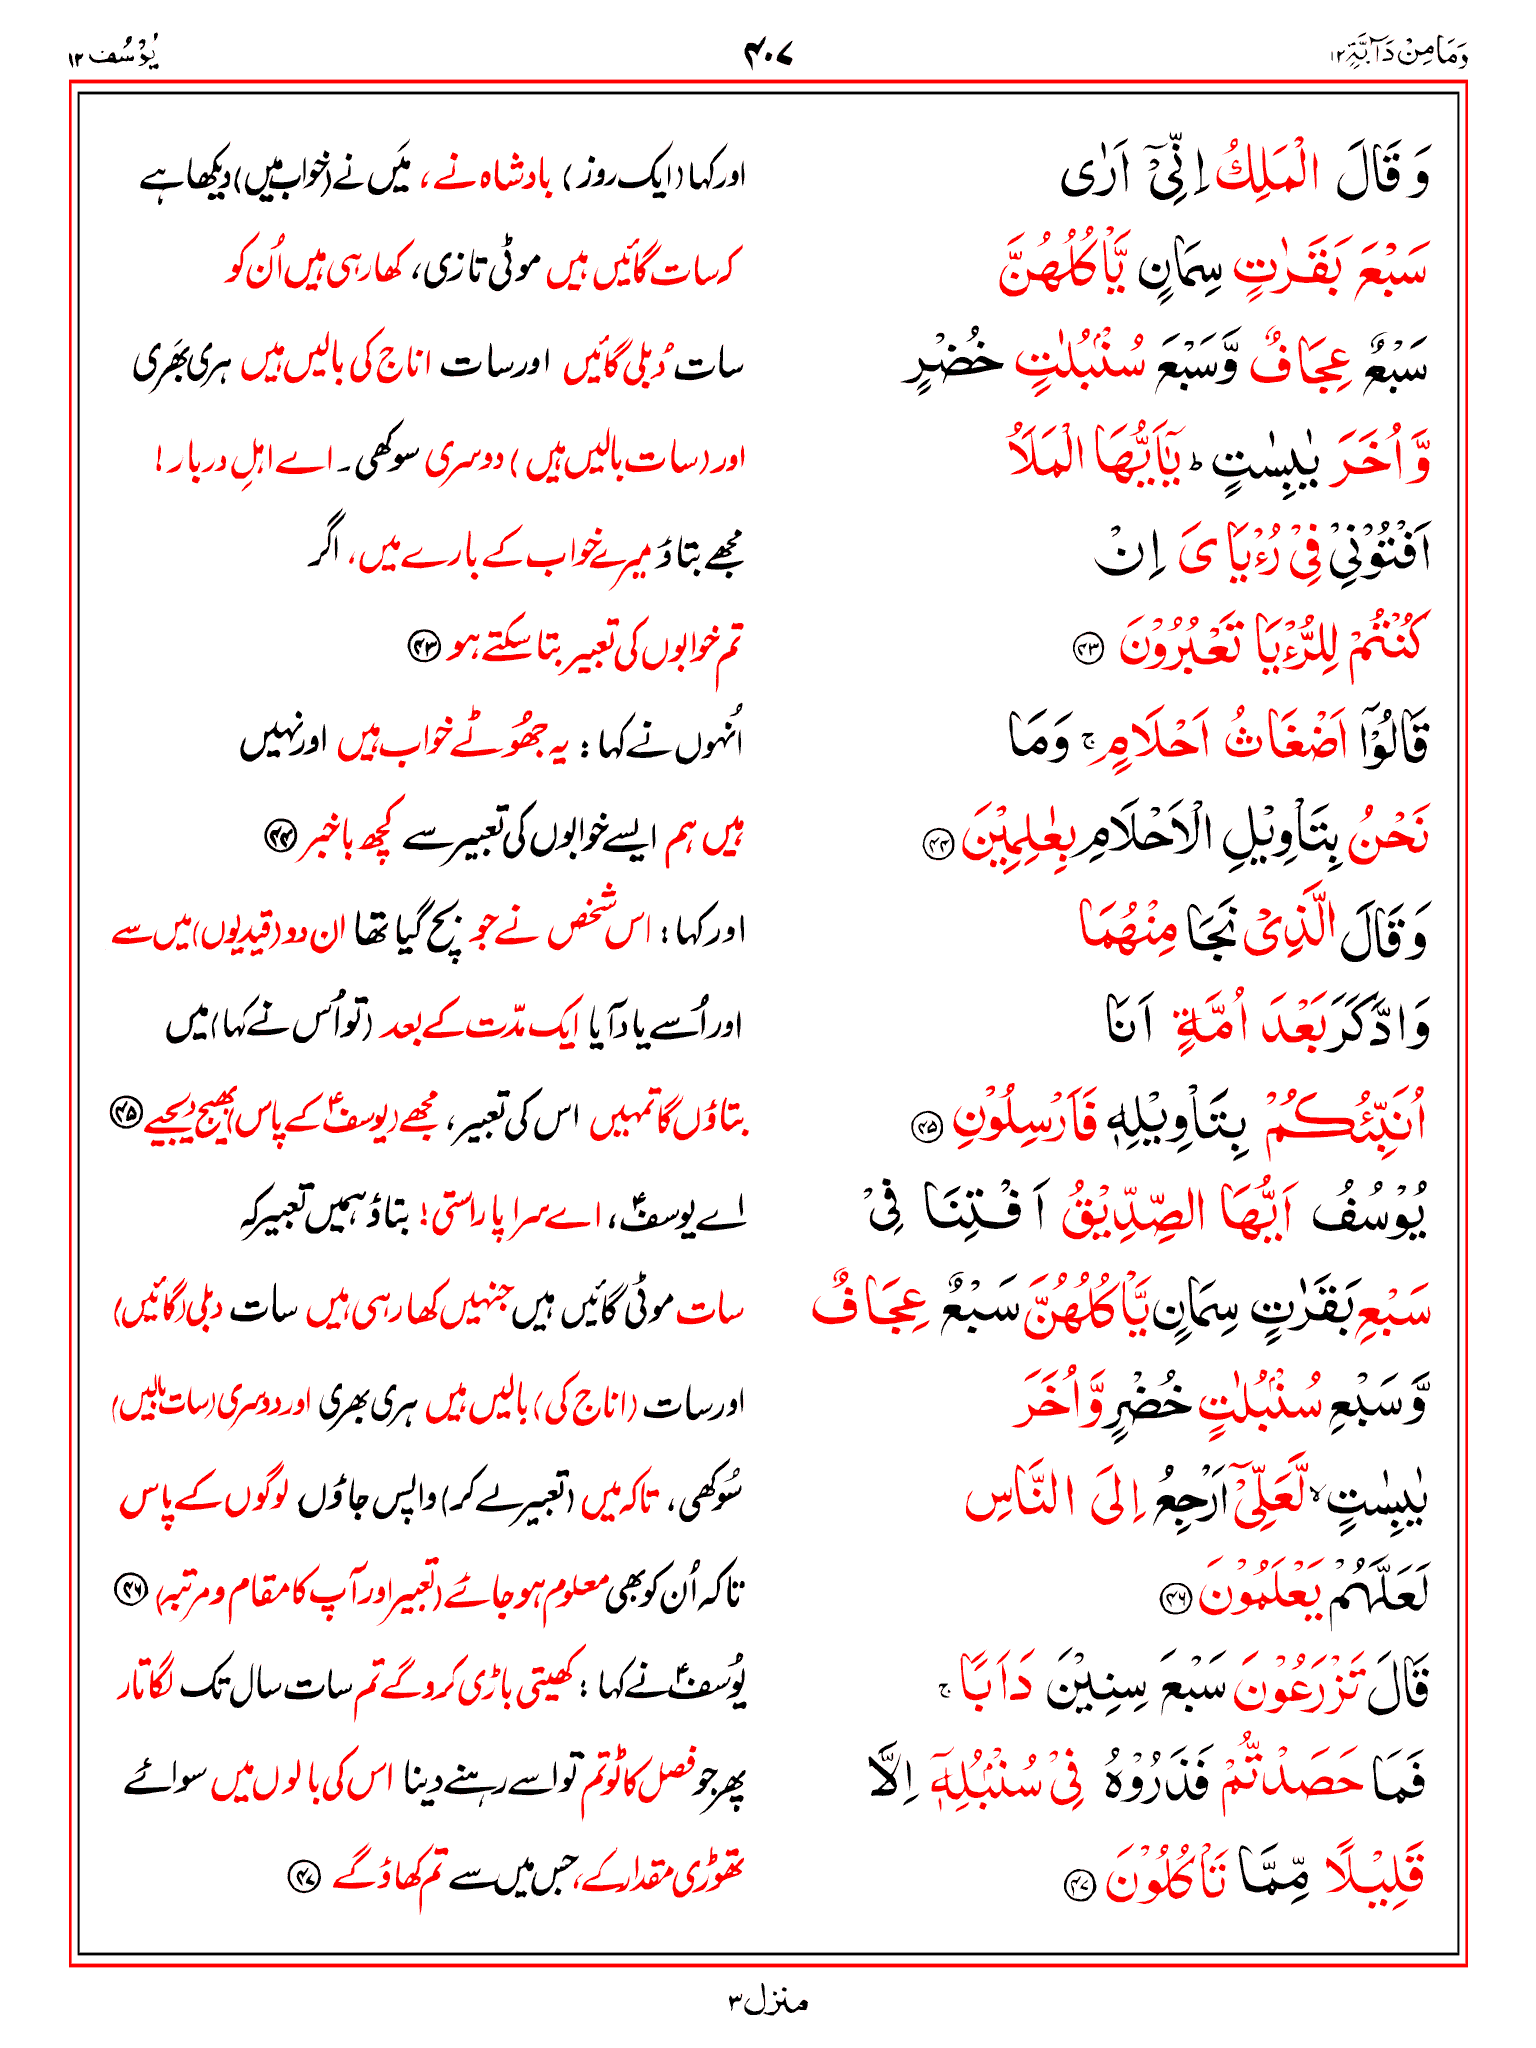 وَمَا مِنْ دَآبَّةٍ ۱۲ ۴۰۷ یُوْسُف ۱۲
وَ قَالَ الْمَلِكُ اِنِّیْۤ اَرٰی اور کہا (ایک روز) بادشاہ نے، مَیں نے (خواب میں) دیکھا ہے
سَبْعَ بَقَرٰتٍ سِمَانٍ یَّاْكُلُهُنَّ کہ سات گائیں ہیں موٹی تازی، کھا رہی ہیں اُن کو
سَبْعٌ عِجَافٌ وَّسَبْعَ سُنْۢبُلٰتٍ خُضْرٍ سات دُبلی گائیں اور سات اناج کی بالیں ہیں ہری بھَری
وَّاُخَرَ یٰبِسٰتٍ ؕ یٰۤاَیُّهَا الْمَلَاُ اور (سات بالیں ہیں) دوسری سوکھی۔ اے اہلِ دربار!
اَفْتُوْنِیْ فِیْ رُءْیَایَ اِنْ مجھے بتاؤ میرے خواب کے بارے میں، اگر
كُنْتُمْ لِلرُّءْیَا تَعْبُرُوْنَ ۴۳ تم خوابوں کی تعبیر بتا سکتے ہو ۴۳
قَالُوْۤا اَضْغَاثُ اَحْلَامٍ ۚ وَمَا اُنہوں نے کہا: یہ جھُوٹے خواب ہیں اور نہیں
نَحْنُ بِتَاْوِیْلِ الْاَحْلَامِ بِعٰلِمِیْنَ ۴۴ ہیں ہم ایسے خوابوں کی تعبیر سے کچھ باخبر ۴۴
وَقَالَ الَّذِیْ نَجَا مِنْهُمَا اور کہا: اس شخص نے جو بچ گیا تھا ان دو (قیدیوں) میں سے
وَادَّكَرَ بَعْدَ اُمَّةٍ اَنَا اور اُسے یاد آیا ایک مدّت کے بعد (تو اُس نے کہا) میں
اُنَبِّئُكُمْ بِتَاْوِیْلِهٖ فَاَرْسِلُوْنِ ۴۵ بتاؤں گا تمہیں اس کی تعبیر، مجھے (یوسفؑ کے پاس) بھیج دیجیے ۴۵
یُوْسُفُ اَیُّهَا الصِّدِّیْقُ اَفْتِنَا فِیْ اے یوسفؑ، اے سراپا راستی! بتاؤ ہمیں تعبیر کہ
سَبْعِ بَقَرٰتٍ سِمَانٍ یَّاْكُلُهُنَّ سَبْعٌ عِجَافٌ سات موٹی گائیں ہیں جنہیں کھا رہی ہیں سات دبلی (گائیں)
وَّسَبْعِ سُنْۢبُلٰتٍ خُضْرٍ وَّاُخَرَ اور سات (اناج کی) بالیں ہیں ہری بھری اور دوسری (سات بالیں)
یٰبِسٰتٍ ۙ لَّعَلِّیْۤ اَرْجِعُ اِلَی النَّاسِ سُوکھی، تاکہ میں (تعبیر لے کر) واپس جاؤں لوگوں کے پاس
لَعَلَّهُمْ یَعْلَمُوْنَ ۴۶ تاکہ اُن کو بھی معلوم ہو جائے (تعبیر اور آپ کا مقام و مرتبہ) ۴۶
قَالَ تَزْرَعُوْنَ سَبْعَ سِنِیْنَ دَاَبًا ۚ یُوسفؑ نے کہا: کھیتی باڑی کرو گے تم سات سال تک لگاتار
فَمَا حَصَدْتُّمْ فَذَرُوْهُ فِیْ سُنْۢبُلِهٖۤ اِلَّا پھر جو فصل کاٹو تم تو اسے رہنے دینا اس کی بالوں میں سوائے
قَلِیْلًا مِّمَّا تَاْكُلُوْنَ ۴۷ تھوڑی مقدار کے، جس میں سے تم کھاؤ گے ۴۷
منزل ۳